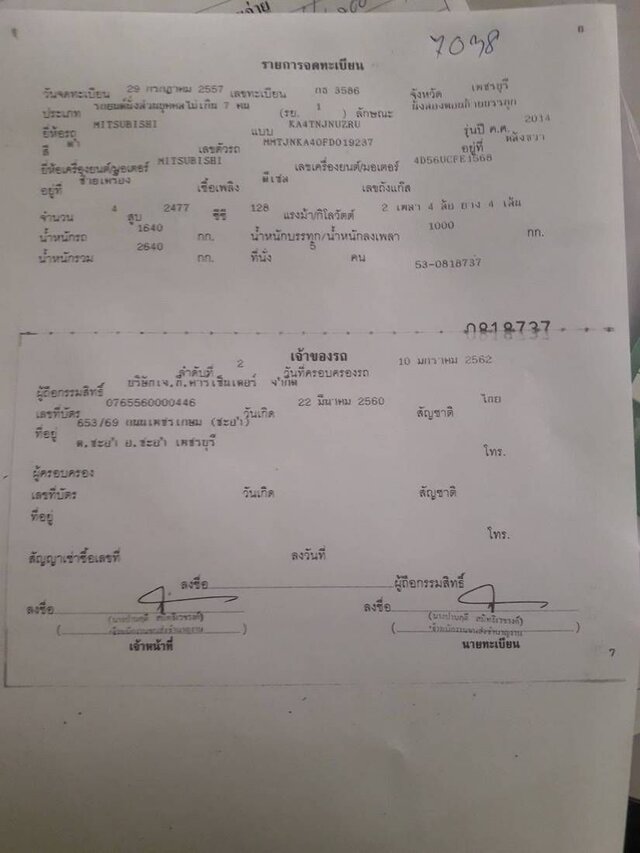 7038
รายการจดทะเบียน
วันจดทะเบียน 29 กรกฎาคม 2557 เลขทะเบียน กธ 3586 จังหวัด เพชรบุรี
ประเภท รถยนต์นั่งส่วนบุคคลไม่เกิน 7 คน (รย. 1 ) ลักษณะ นั่งสองตอนท้ายบรรทุก
ยี่ห้อรถ MITSUBISHI แบบ KA4TNJNUZRU รุ่นปี ค.ศ. 2014
สี ดำ เลขตัวรถ MMTJNKA40FD019237 อยู่ที่ หลังขวา
ยี่ห้อเครื่องยนต์/มอเตอร์ MITSUBISHI เลขเครื่องยนต์/มอเตอร์ 4D56UCFE1568
อยู่ที่ ซ้ายเครื่อง เชื้อเพลิง ดีเซล เลขถังแก๊ส
จำนวน 4 สูบ 2477 ซีซี 128 แรงม้า/กิโลวัตต์ 2 เพลา 4 ล้อ ยาง 4 เส้น
น้ำหนักรถ 1640 กก. น้ำหนักบรรทุก/น้ำหนักลงเพลา 1000 กก.
น้ำหนักรวม 2640 กก. ที่นั่ง 5 คน 53-0818737
0818737
เจ้าของรถ
ลำดับที่ 2 วันที่ครอบครองรถ 10 มกราคม 2562
ผู้ถือกรรมสิทธิ์ บริษัทเจ.ที.คาร์เซ็นเตอร์ จำกัด
เลขที่บัตร 0765560000446 วันเกิด 22 มีนาคม 2560 สัญชาติ ไทย
ที่อยู่ 653/69 ถนนเพชรเกษม (ชะอำ)
ต.ชะอำ อ.ชะอำ เพชรบุรี
โทร.
ผู้ครอบครอง
เลขที่บัตร วันเกิด สัญชาติ
ที่อยู่
โทร.
สัญญาเช่าซื้อเลขที่ ลงวันที่
ลงชื่อ ผู้ถือกรรมสิทธิ์
ลงชื่อ ลงชื่อ
เจ้าหน้าที่ นายทะเบียน
7